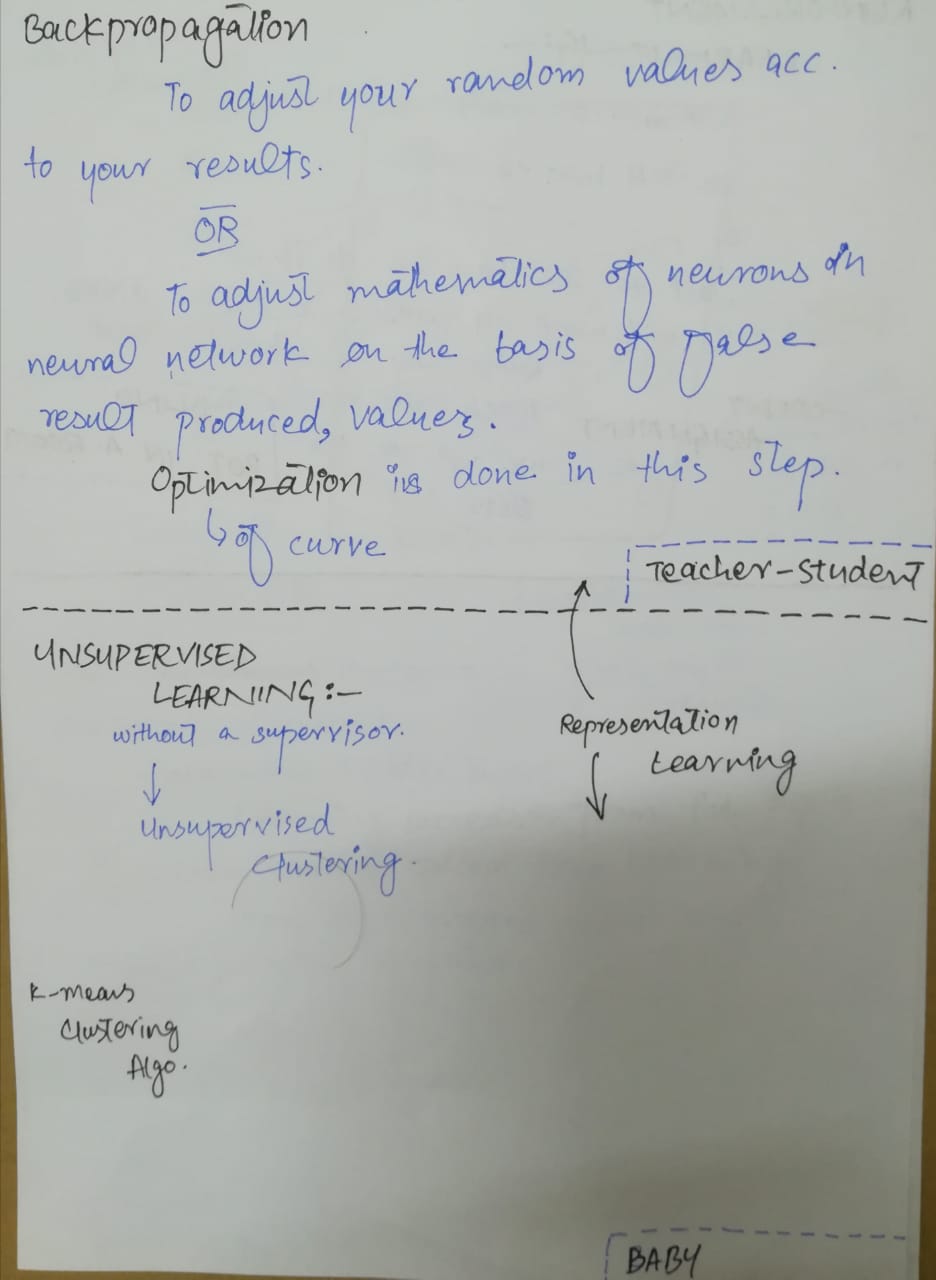 Backpropagation
To adjust your random values acc.
to your results.
OR
To adjust mathematics of neurons in
neural network on the basis of false
result produced, values.
Optimization is done in this step.
↳ of curve
Teacher-Student
UNSUPERVISED
LEARNING :-
without a supervisor.
↓
Unsupervised
Clustering.
Representation
Learning
↓
K-means
Clustering
Algo.
BABY